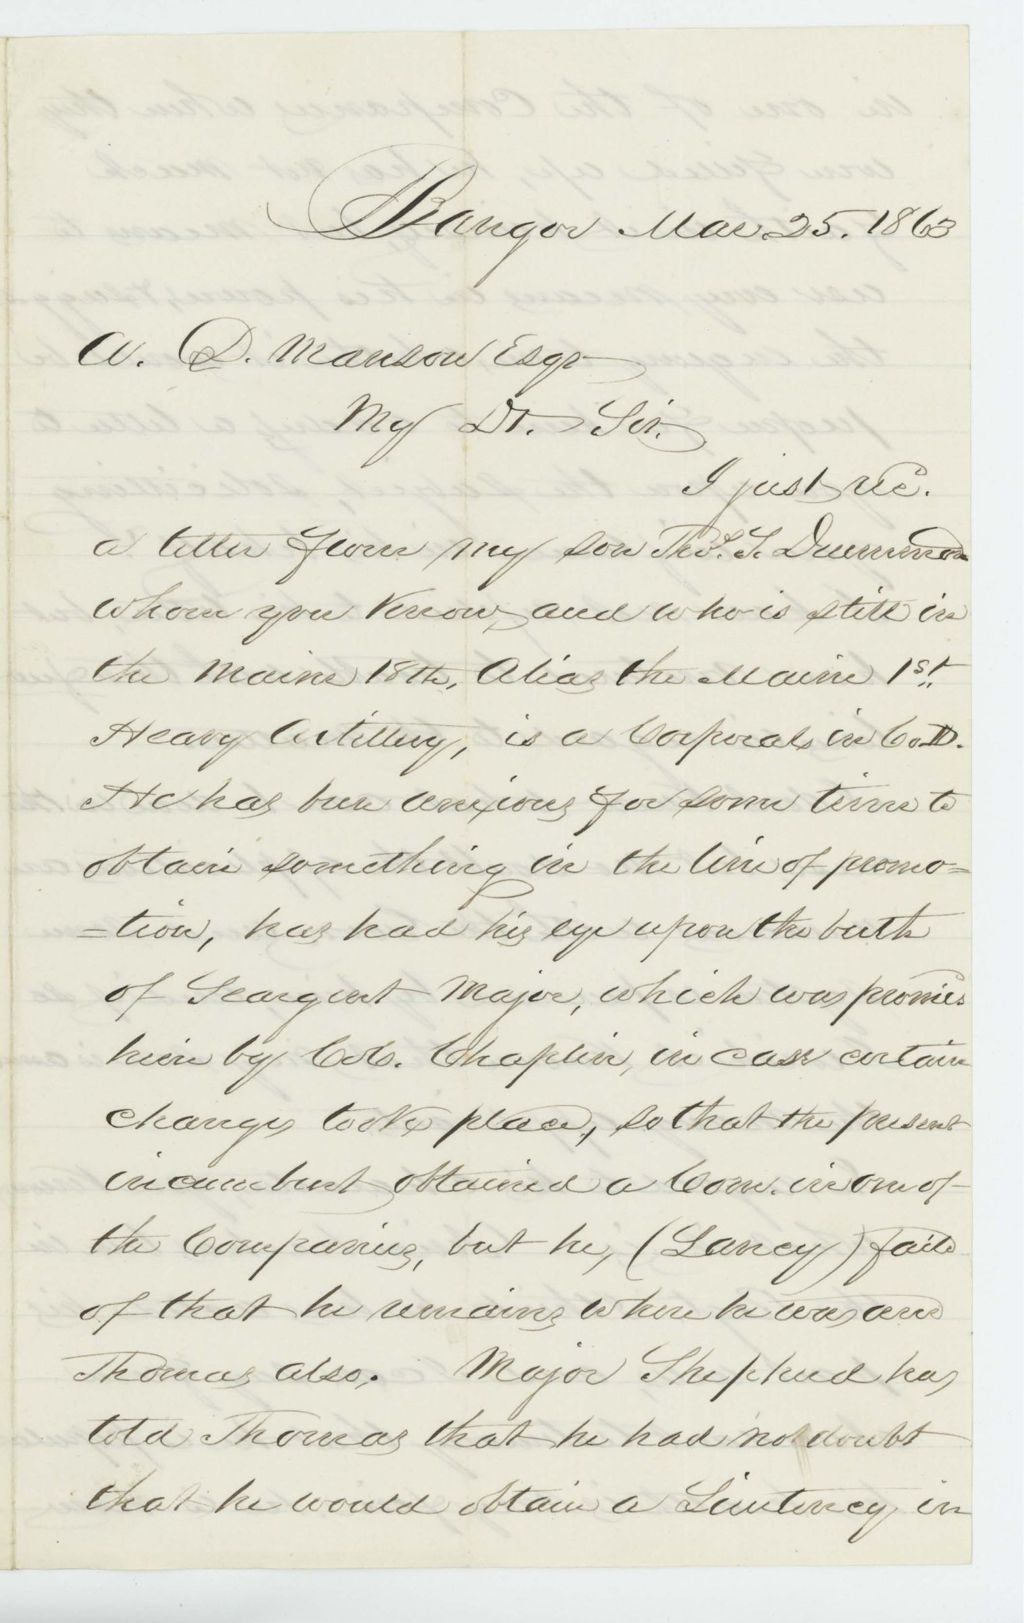 Bangor Mar. 25. 1863
A. D. Manson Esqr
My Dr. Sir.
I just rec.
a letter from my son Thos. S. Drummond
whom you know, and who is still in
the Maine 18th, Alias the Maine 1st.
Heavy Artillery, is a Corporal in Co. D.
He has been anxious for some time to
obtain something in the line of promo=
=tion, has had his eye upon the birth
of Seargent Major, which was promis
him by Col. Chaplin, in case certain
changes took place, so that the present
incumbent obtained a Com. in one of
the Companies, but he, (Lancy) fails
of that he remains where he was and
Thomas also. Major Shepherd has
told Thomas that he had not doubt
that he would obtain a Lieutency in